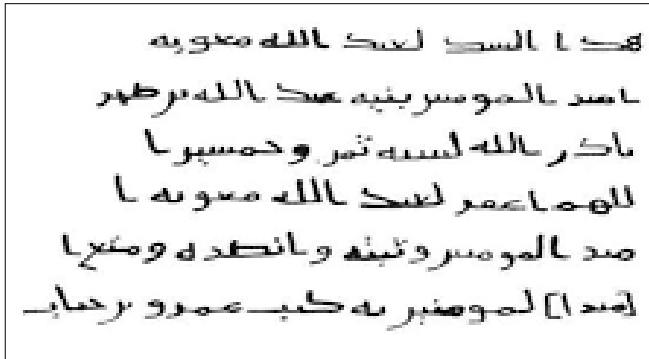 هذا السد لعبد الله معويه
امير المومنين بنيه عبد الله بن صخر
باذن الله لسنه ثمن وخمسين ا
للهم اغفر لعبد الله معويه ا
مير المومنين وثبته وانصره ومتع ا
[مير ا]لمومنين به كتب عمرو بن حباب